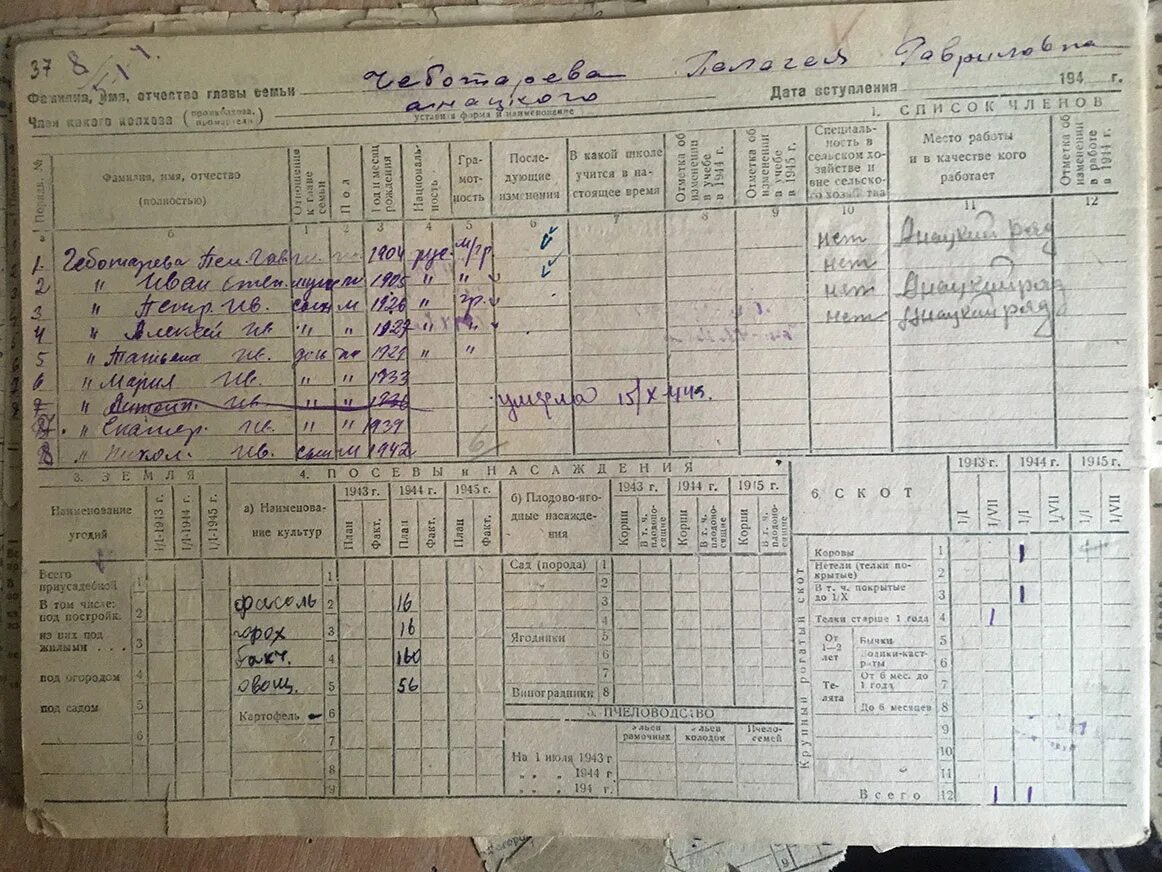 37 8
Чеботарева Пелагея Гавриловна
Фамилия, имя, отчество главы семьи
Дата вступления 194 г.
Член какого колхоза (промколхоза, промартели)
уставная форма и наименование
1. СПИСОК ЧЛЕНОВ
Порядк. №
Фамилия, имя, отчество (полностью)
Отношение к главе семьи
Пол
Год и месяц рождения
Националь-ность
Гра-мот-ность
После-дующие изменения
В какой школе учится в на-стоящее время
Отметка об изменении в учебе в 1944 г.
Отметка об изменении в учебе в 1945 г.
Специаль-ность в сельском хо-зяйстве и вне сельско-го хозяйства
Место работы и в качестве кого работает
Отметка об изменении в работе в 1944 г.
а б 1 2 3 4 5 6 7 8 9 10 11 12
1. Чеботарева Пел. Гав. 1904 рус. м/гр нет ряд
2 " Иван Степ. 1905 " " нет
3 " Петр Ив. сын м 1926 " гр. нет ряд
4 " Алексей Ив. " " 1927 " " нет ряд
5 " Татьяна Ив. дочь 1929 " "
6 " Мария Ив. " " 1933
7 " Ив. " " 1936 умерла 15/X-44г.
" Ив. " " 1939
8 " Никол. Ив. сын м 1942
3. ЗЕМЛЯ
Наименование угодий
1/I-1943 г.
1/I-1944 г.
1/I-1945 г.
Всего приусадебной 1
В том числе: под постройк. 2
из них под жилыми 3
под огородом 4
под садом 5
6
4. ПОСЕВЫ и НАСАЖДЕНИЯ
а) Наименова-ние культур
1943 г. 1944 г. 1945 г.
План Факт. План Факт. План Факт.
1
фасоль 2 16
горох 3 16
бахч. 4 160
овощ. 5 56
Картофель 6
7
8
9
б) Плодово-яго-дные насажде-ния
1943 г. 1944 г. 1945 г.
Корни В т. ч. плодоно-сящие Корни В т. ч. плодоно-сящие Корни В т. ч. плодоно-сящие
Сад (порода) 1
2
3
4
Ягодники 5
6
7
Виноградники 8
5. ПЧЕЛОВОДСТВО
Ульев рамочных
Ульев колодок
Пчело-семей
На 1 июля 1943 г
" " " 1944 г.
" " " 194 г.
6. СКОТ
1943 г. 1944 г. 1945 г.
1/I 1/VII 1/I 1/VII 1/I 1/VII
Крупный рогатый скот
Коровы 1 1
Нетели (телки по-крытые) 2
В т. ч. покрытые до 1/X 3 1
Телки старше 1 года 4 1
От 1—2 лет
Бычки 5
Волики-каст-раты 6
Те-лята
От 6 мес. до 1 года 7
До 6 месяцев 8
9
10
11
Всего 12 1 1